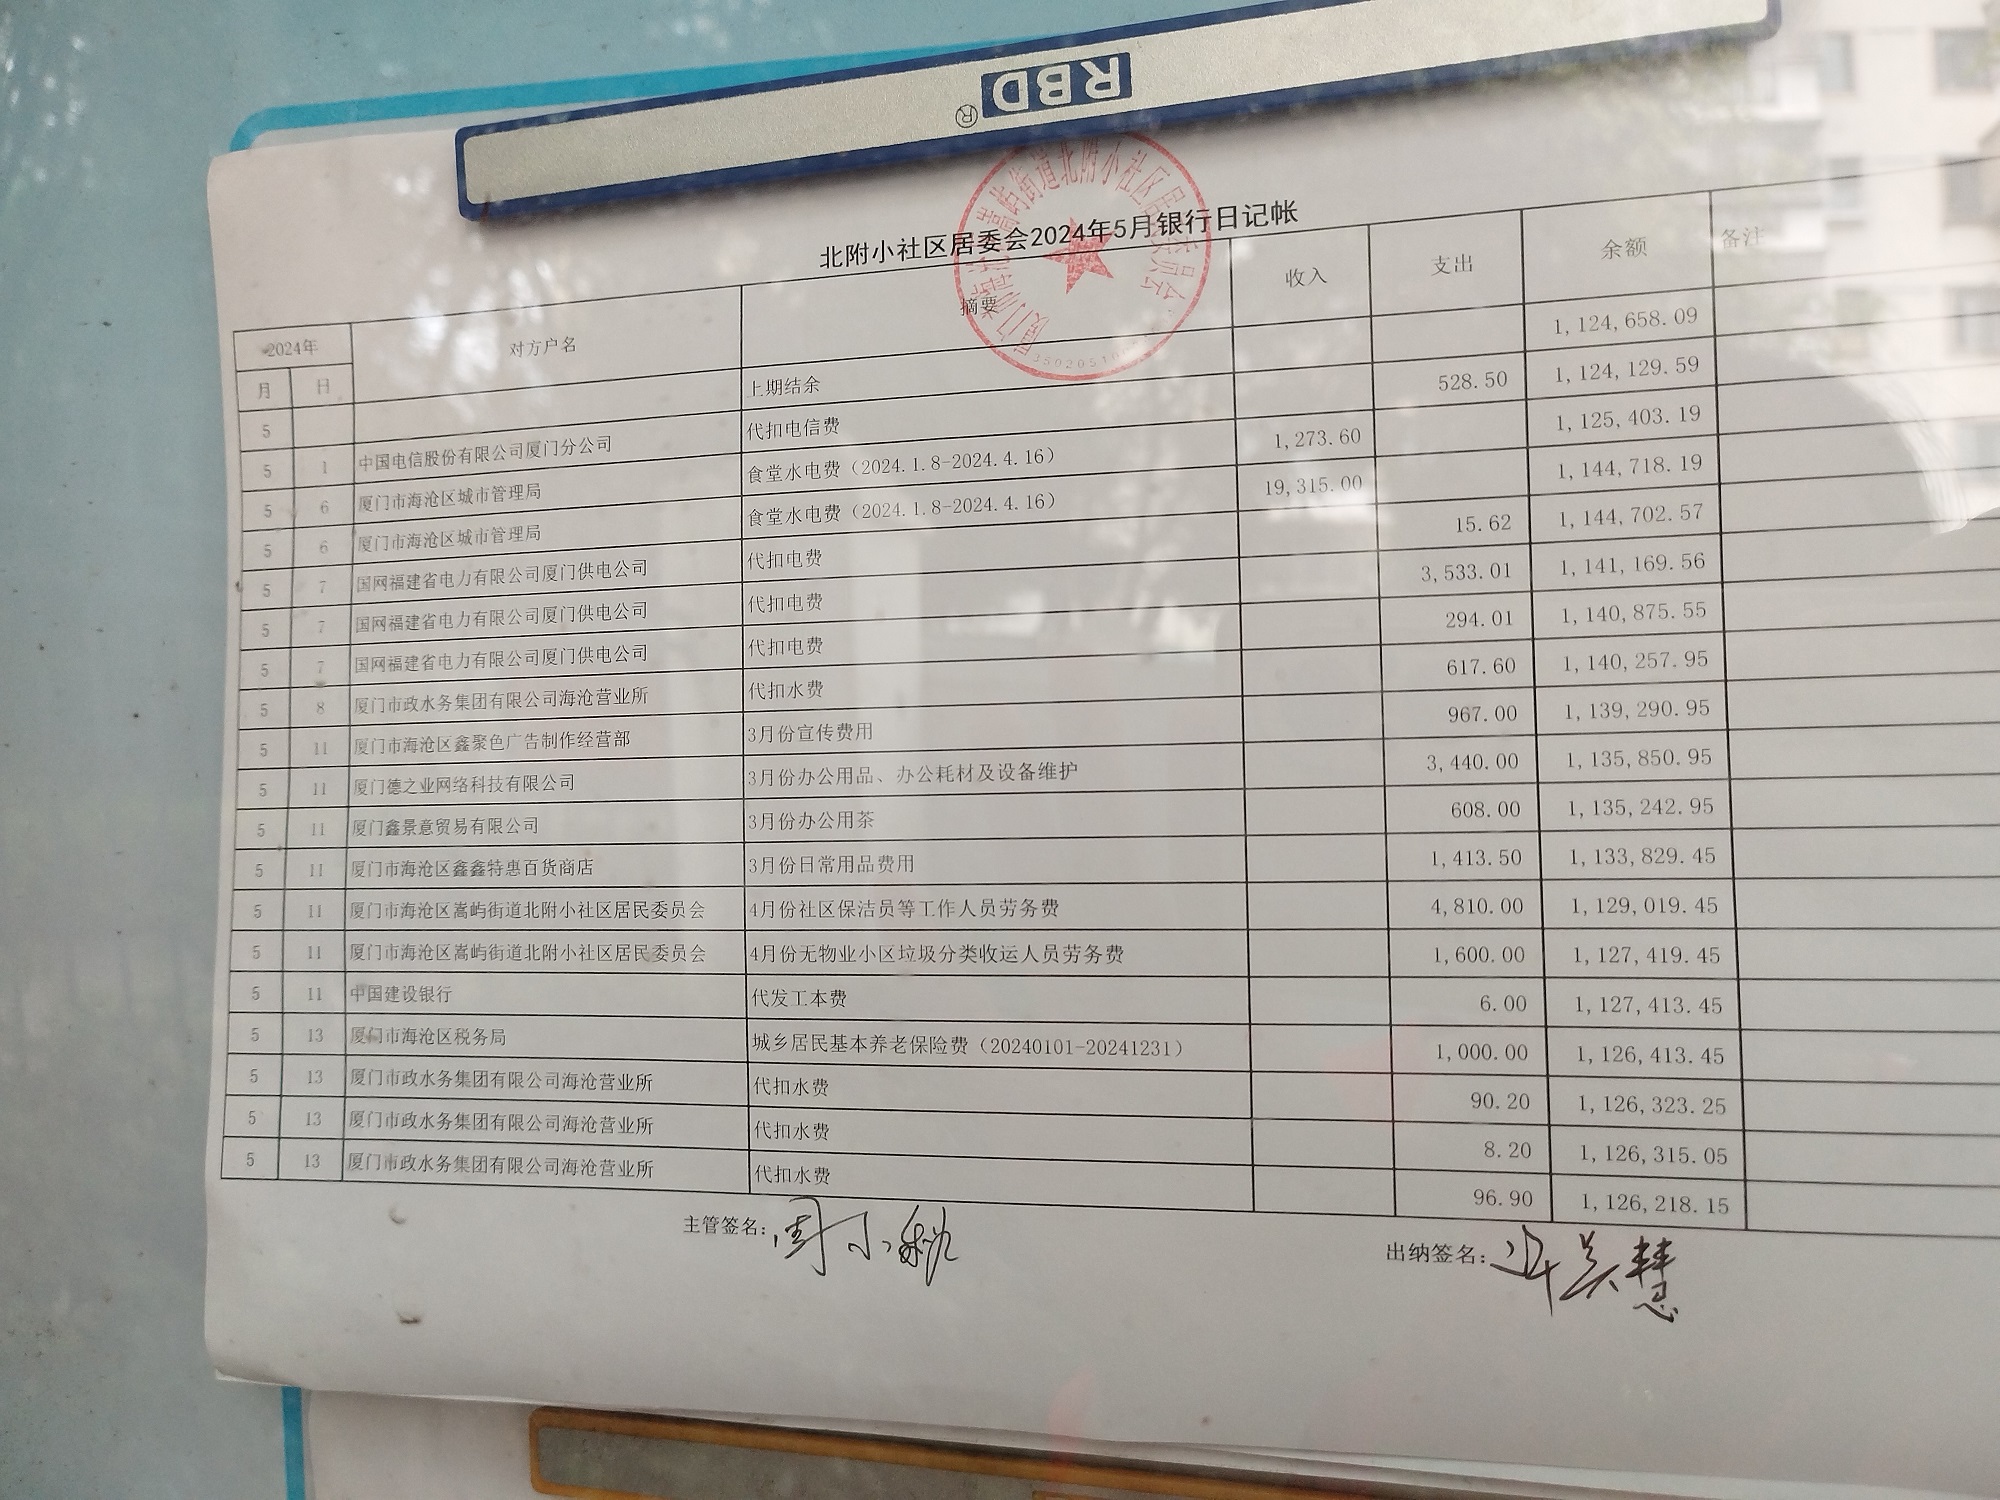 RBD®
北附小社区居委会2024年5月银行日记帐
2024年 对方户名 摘要 收入 支出 余额 备注
月 日
5 上期结余 1,124,658.09
5 1 中国电信股份有限公司厦门分公司 代扣电信费 528.50 1,124,129.59
5 6 厦门市海沧区城市管理局 食堂水电费（2024.1.8-2024.4.16） 1,273.60 1,125,403.19
5 6 厦门市海沧区城市管理局 食堂水电费（2024.1.8-2024.4.16） 19,315.00 1,144,718.19
5 7 国网福建省电力有限公司厦门供电公司 代扣电费 15.62 1,144,702.57
5 7 国网福建省电力有限公司厦门供电公司 代扣电费 3,533.01 1,141,169.56
5 7 国网福建省电力有限公司厦门供电公司 代扣电费 294.01 1,140,875.55
5 8 厦门市政水务集团有限公司海沧营业所 代扣水费 617.60 1,140,257.95
5 11 厦门市海沧区鑫聚色广告制作经营部 3月份宣传费用 967.00 1,139,290.95
5 11 厦门德之业网络科技有限公司 3月份办公用品、办公耗材及设备维护 3,440.00 1,135,850.95
5 11 厦门鑫景意贸易有限公司 3月份办公用茶 608.00 1,135,242.95
5 11 厦门市海沧区鑫鑫特惠百货商店 3月份日常用品费用 1,413.50 1,133,829.45
5 11 厦门市海沧区嵩屿街道北附小社区居民委员会 4月份社区保洁员等工作人员劳务费 4,810.00 1,129,019.45
5 11 厦门市海沧区嵩屿街道北附小社区居民委员会 4月份无物业小区垃圾分类收运人员劳务费 1,600.00 1,127,419.45
5 11 中国建设银行 代发工本费 6.00 1,127,413.45
5 13 厦门市海沧区税务局 城乡居民基本养老保险费（20240101-20241231） 1,000.00 1,126,413.45
5 13 厦门市政水务集团有限公司海沧营业所 代扣水费 90.20 1,126,323.25
5 13 厦门市政水务集团有限公司海沧营业所 代扣水费 8.20 1,126,315.05
5 13 厦门市政水务集团有限公司海沧营业所 代扣水费 96.90 1,126,218.15
主管签名：周小
出纳签名：慧